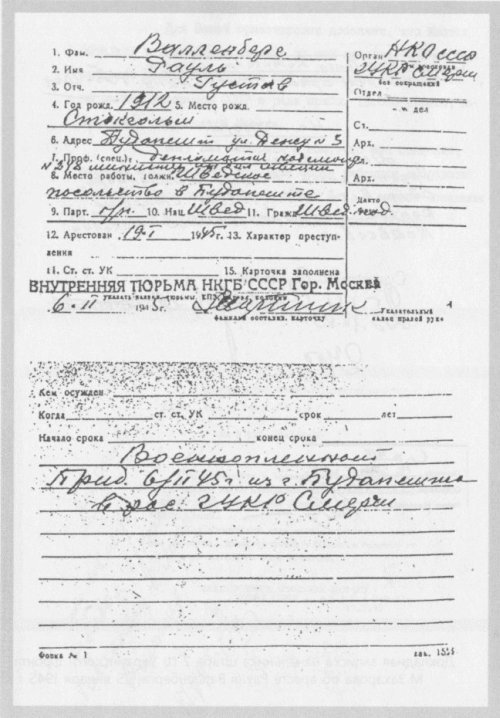 1. Фам. Валленберг
Орган НКО СССР
ГУКР Смерш
без сокращений
2. Имя Рауль
3. Отч. Густав
Отдел
4. Год рожд. 1912 5. Место рожд.
" " дел
Стокгольм
Ст.
6. Адрес Будапешт ул.
Арх.
7. Проф. (спец.)
8. Место работы, должн. Шведское
Арх.
посольство в Будапеште
9. Парт. б/п. 10. Нац. Швед 11. Гражд. Швед. под.
12. Арестован 19-I 1945 г. 13. Характер преступ-
ления
14. Ст. ст. УК 15. Карточка заполнена
ВНУТРЕННЯЯ ТЮРЬМА НКГБ СССР Гор. Москва
6-II 1945 г.
фамилия составив. карточку
Указательный
палец правой руки
Кем осужден
Когда ст. ст. УК срок лет
Начало срока конец срока
Военнопленный
Приб. 6/II 45 г из г. Будапешта
в рас. ГУКР Смерш
Форма № 1
зак.